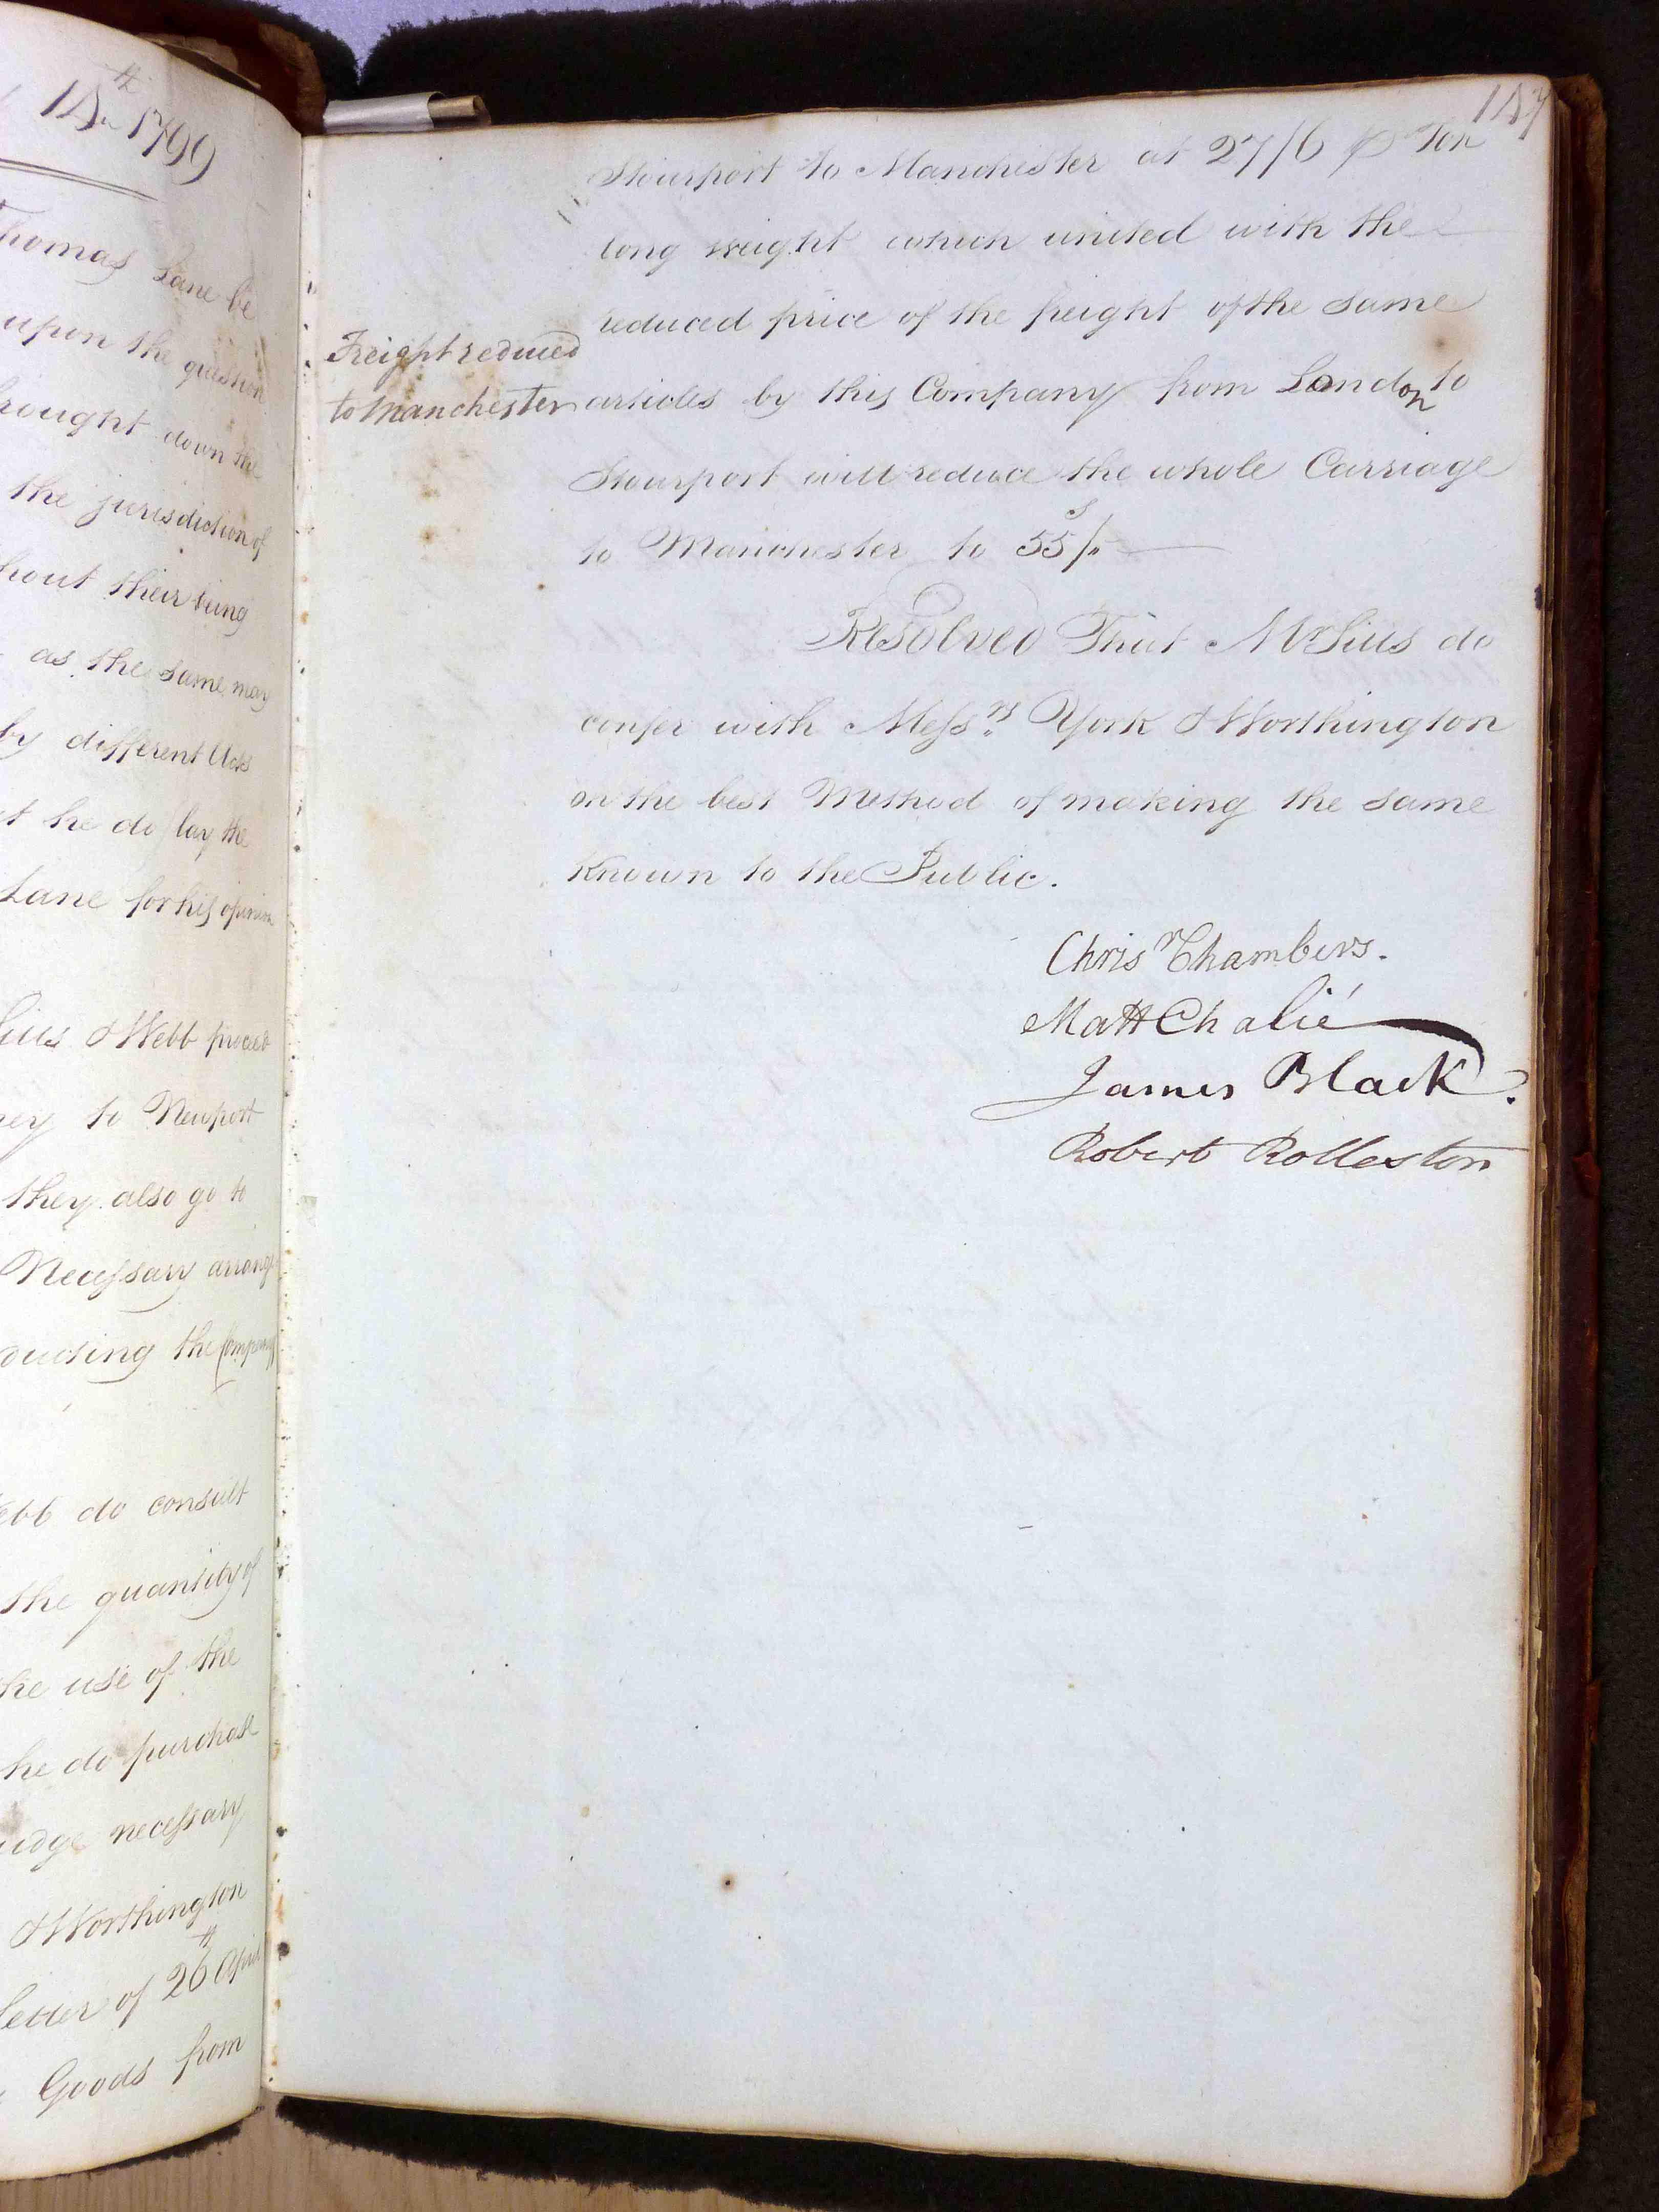 14th 1799
Thomas Lane be
upon the question
brought down the
the jurisdiction of
hout their being
as the same may
by different Acts
t he do lay the
Lane for his opinion
Sills & Webb proceed
ey to Newport
they also go to
Necessary arrange
ducting the Company
ebb do consult
the quantity of
he use of the
he do purchase
udge necessary
& Worthington
letter of 26th April
Goods from
157
Stourport to Manchester at 27/6 ⅌ Ton
long weight which united with the
reduced price of the freight of the same
Freight reduced
to Manchester
articles by this Company from London to
Stourport will reduce the whole Carriage
to Manchester to 55s/-
Resolved That Mr Sills do
confer with Messrs York & Worthington
on the best Method of making the same
known to the Public.
Chrisr Chambers.
Matt Chalié
James Black.
Robert Rolleston